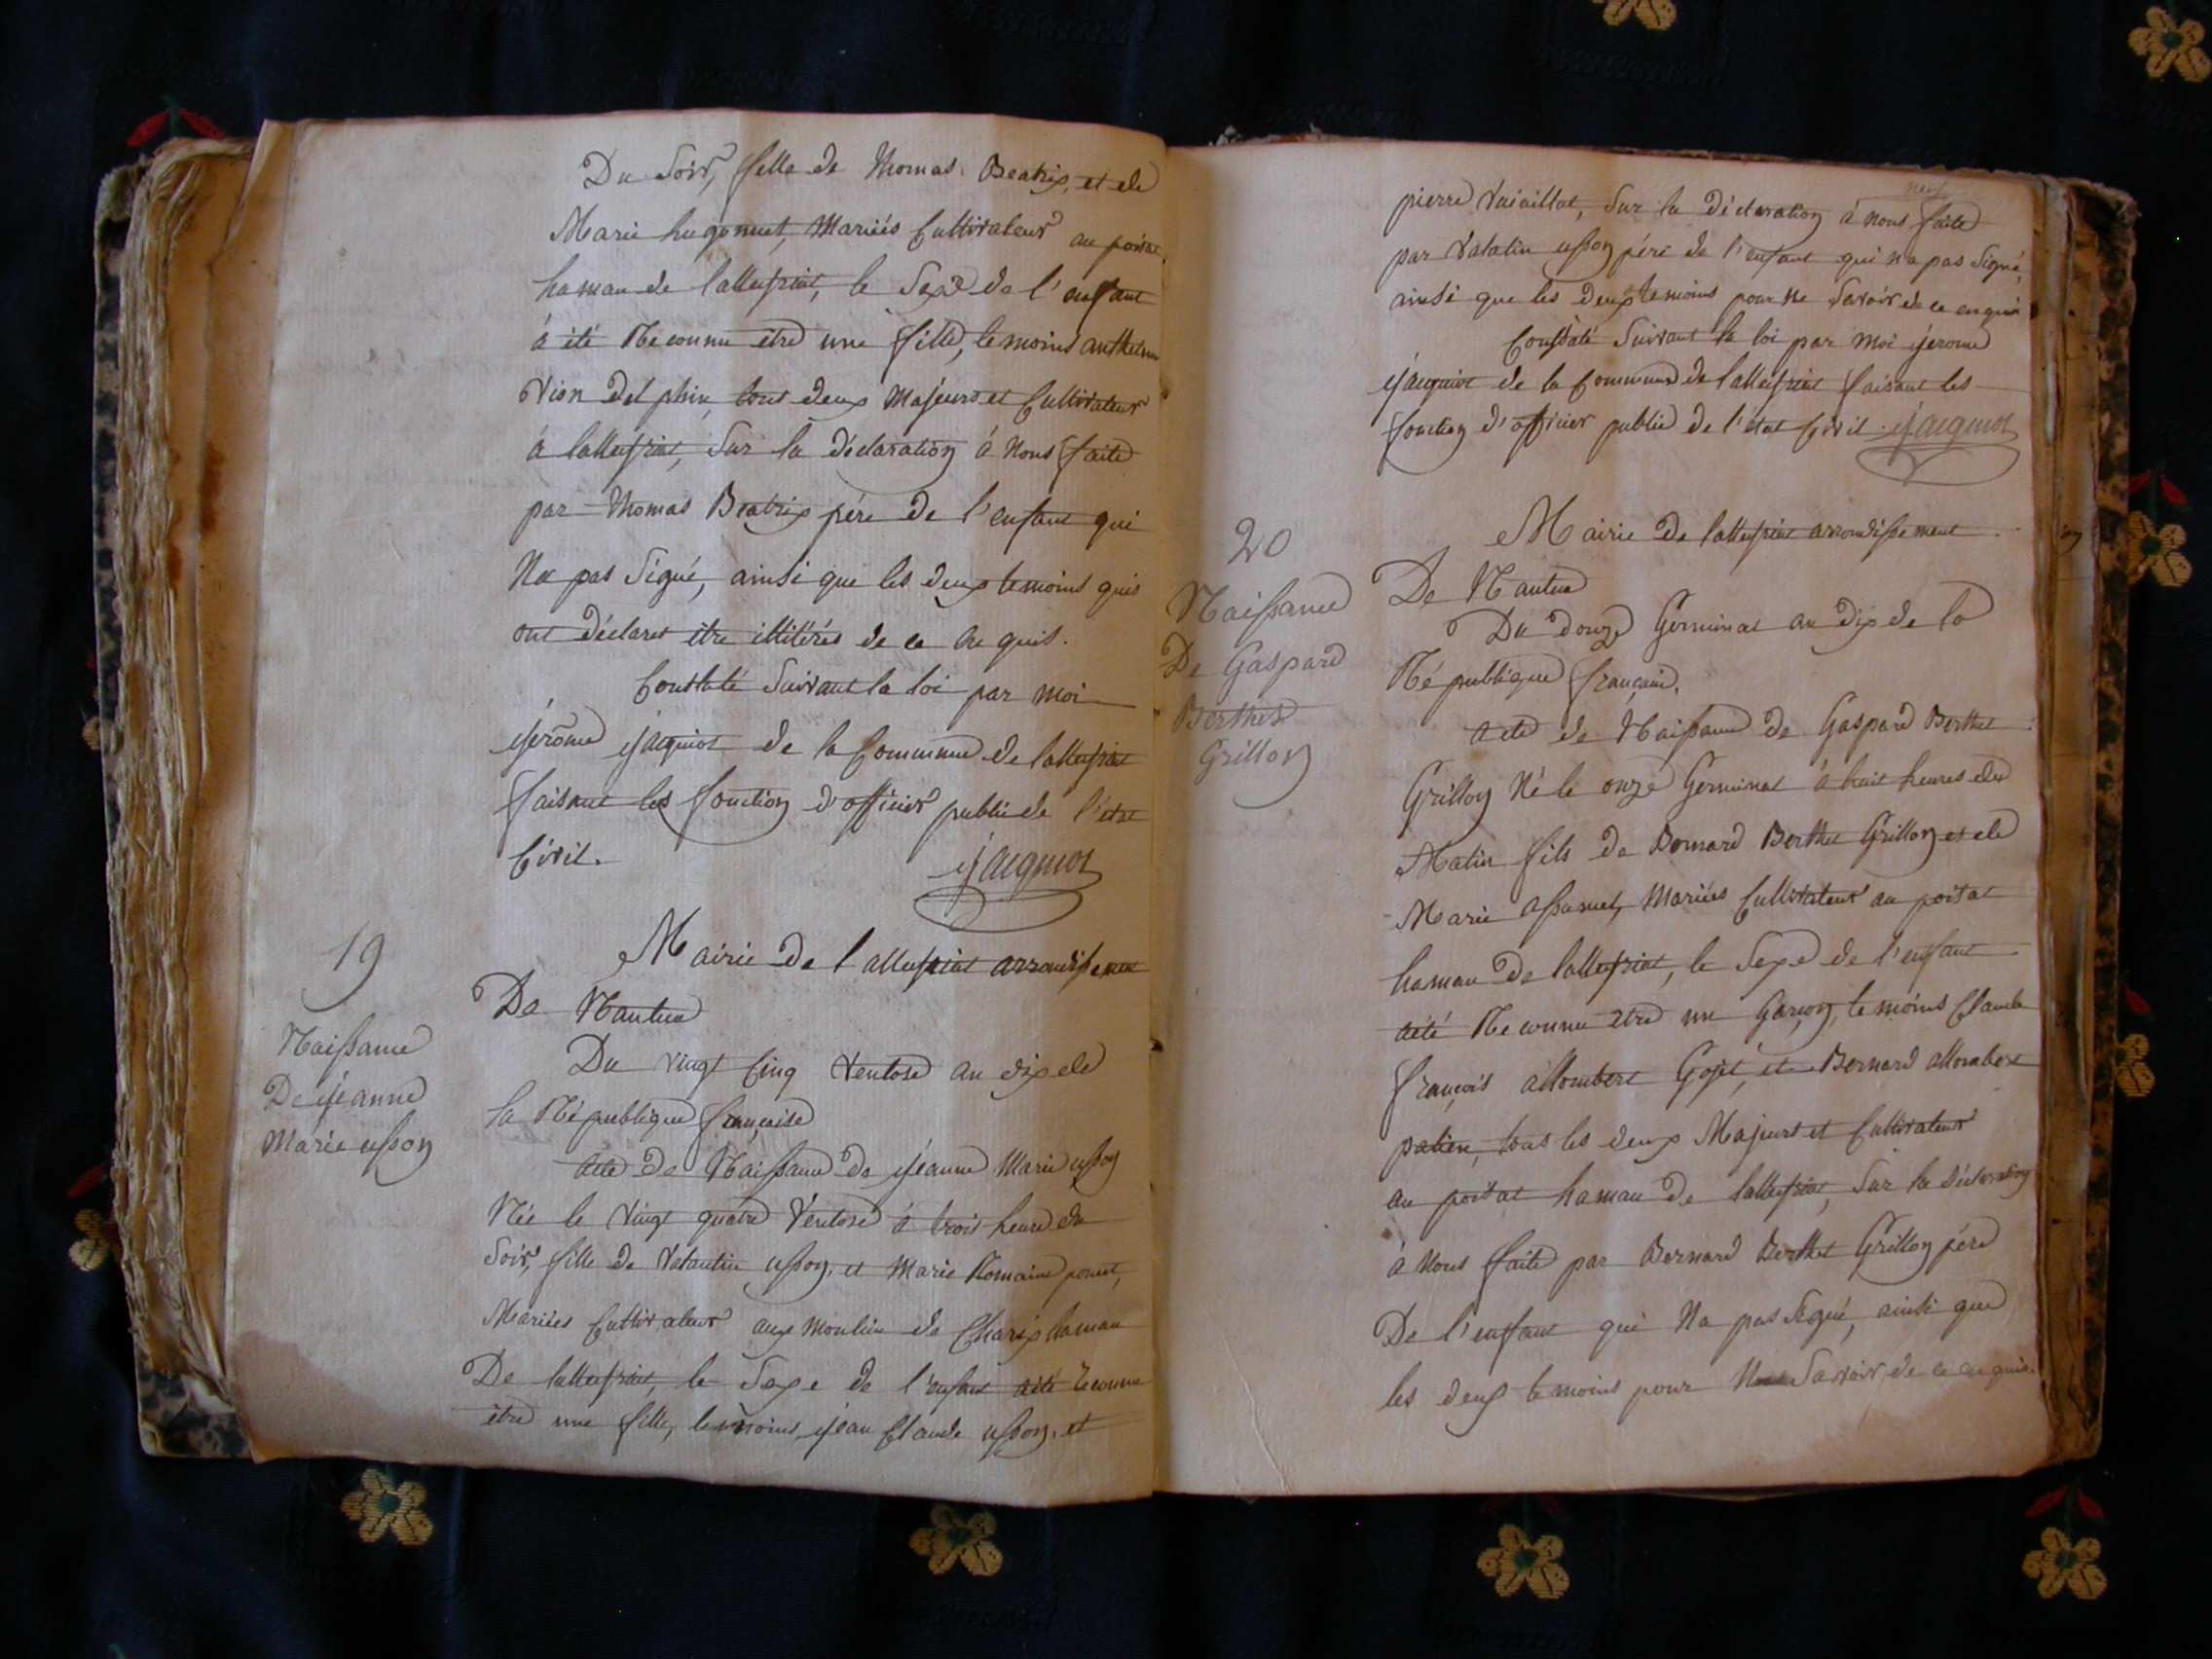 Du Soir, fille de Thomas Beatrix, et de
Marie hugonnet, Mariés Cultivateur au poisat
hamau de lalleyriat, le Sexe de l'enfant
à été Reconnu être une fille, temoins anthelme
Vion Delphin, tous deux Majeurs et Cultivateur
à lalleyriat, Sur la déclaration à Nous faite
par Thomas Beatrix pére de l'enfant qui
Na pas Signé, ainsi que les deux temoins quis
ont déclaret être illitérés de ce En quis.
Constaté Suivant la loi par moi
jérôme jacquiot de la Commune de lalleyriat
faisant les fonction d'officier public de l'état
Civil. jacquiot
19
Naissance
De jeanne
Marie usson
Mairie de lalleyriat arrondissement
De Nantua
Du vingt Cinq Ventose an dix de
la République française
Acte de Naissance de jeanne Marie usson
Née le Vingt quatre Ventose à trois heure du
Soir, fille de Valantin usson, et Marie Romaine ponet,
Mariées Cultivateur aux Moulin de Charix hamau
De lalleyriat, le Sexe de l'enfant aété reconnu
être une fille, temoins, jean Claude usson, et
neuf
pierre Vuaillat, Sur la Déclaration à nous faite
par Valatin usson pére de l'enfant qui na pas Signé,
ainsi que les Deux temoins pour ne Savoir de ce enquis
Constaté Suivant la loi par Moi jerome
jacquiot de la Commune de lalleyriat faisant les
fonction d'officier public de l'état Civil. jacquiot
20
Naissance
De Gaspard
Berthet
Grillon
Mairie de lalleyriat arrondissement
De Nantua
Du Douze Germinal an dix de la
République française.
acte de Naissance de Gaspard Berthet
Grillon Né le onze Germinal à huit heures du
Matin fils de Bernard Berthet Grillon et de
Marie assumel, Mariées Cultivateur au poisat
hamau De lalleyriat, le Sexe de l'enfant
aété Reconnu être un Garçon, temoins Claude
françois allombert Gojet, et Bernard allombert
patien, tous les deux Majeurs et Cultivateur
au poisat hamau de lalleyriat, Sur la déclaration
à Nous faite par Bernard Berthet Grillon pére
De l'enfant qui Na pas Signé, ainsi que
les deux temoins pour Savoir de ce en quis.